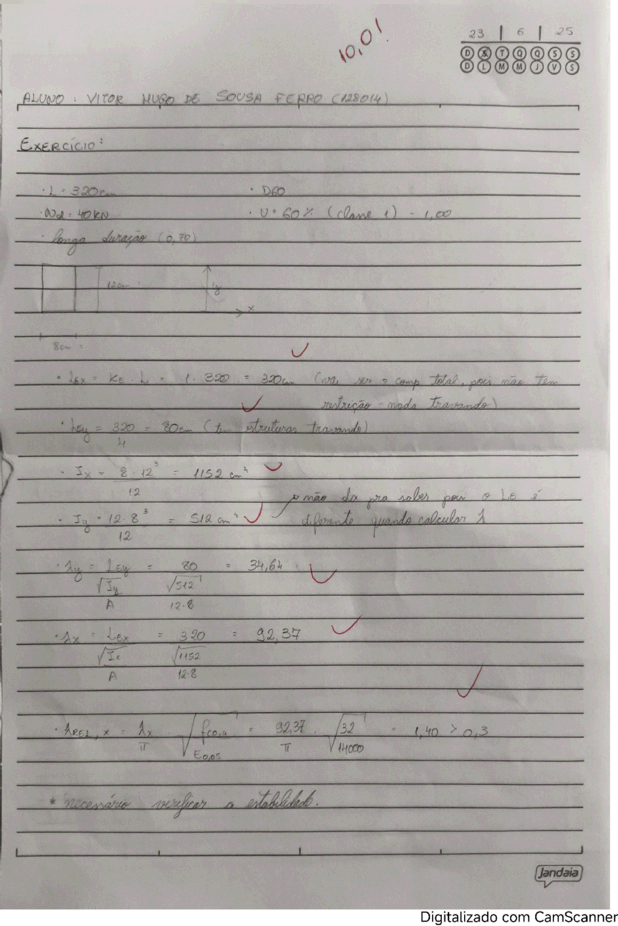 10,0!
23 | 6 | 25
D X T Q Q S S
D L M M J V S
ALUNO: VITOR HUGO DE SOUSA FERRO (128014)
EXERCÍCIO:
· L = 320cm · D60
· Nd = 40KN · U = 60% (classe 1) - 1,00
· longa duração (0,70)
12cm y
x
8cm
· LEx = KE · L = 1 · 320 = 320cm (vai ser o comp total, pois não tem
restrição - nada travando)
· LEy = 320 = 80cm (tem estruturas travando)
4
· Ix = 8 · 12³ = 1152 cm⁴
12
não da pra saber pois o LE é
· Iy = 12 · 8³ = 512 cm⁴ diferente quando calcular λ
12
· λy = LEy = 80 = 34,64
√Iy √512
A 12·8
· λx = LEx = 320 = 92,37
√Ix √1152
A 12·8
· λrel,x = λx · √fc0,k = 92,37 · √32 = 1,40 > 0,3
π E0,05 π 14000
* necessário verificar a estabilidade.
Jandaia
Digitalizado com CamScanner